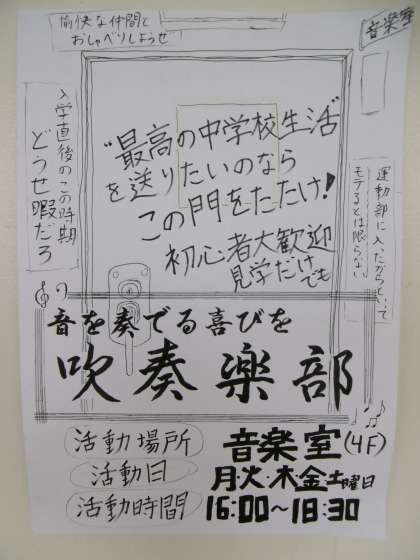 愉快な仲間と
おしゃべりしようぜ
音楽室
入学直後のこの時期
どうせ暇だろ
"最高の中学校生活"
を送りたいのなら
この門をたたけ!
初心者大歓迎
見学だけでも
運動部に入ったからといって
モテるとは限らない
音を奏でる喜びを
吹奏楽部
活動場所 音楽室(4F)
活動日 月火・木金土曜日
活動時間 16:00~18:30